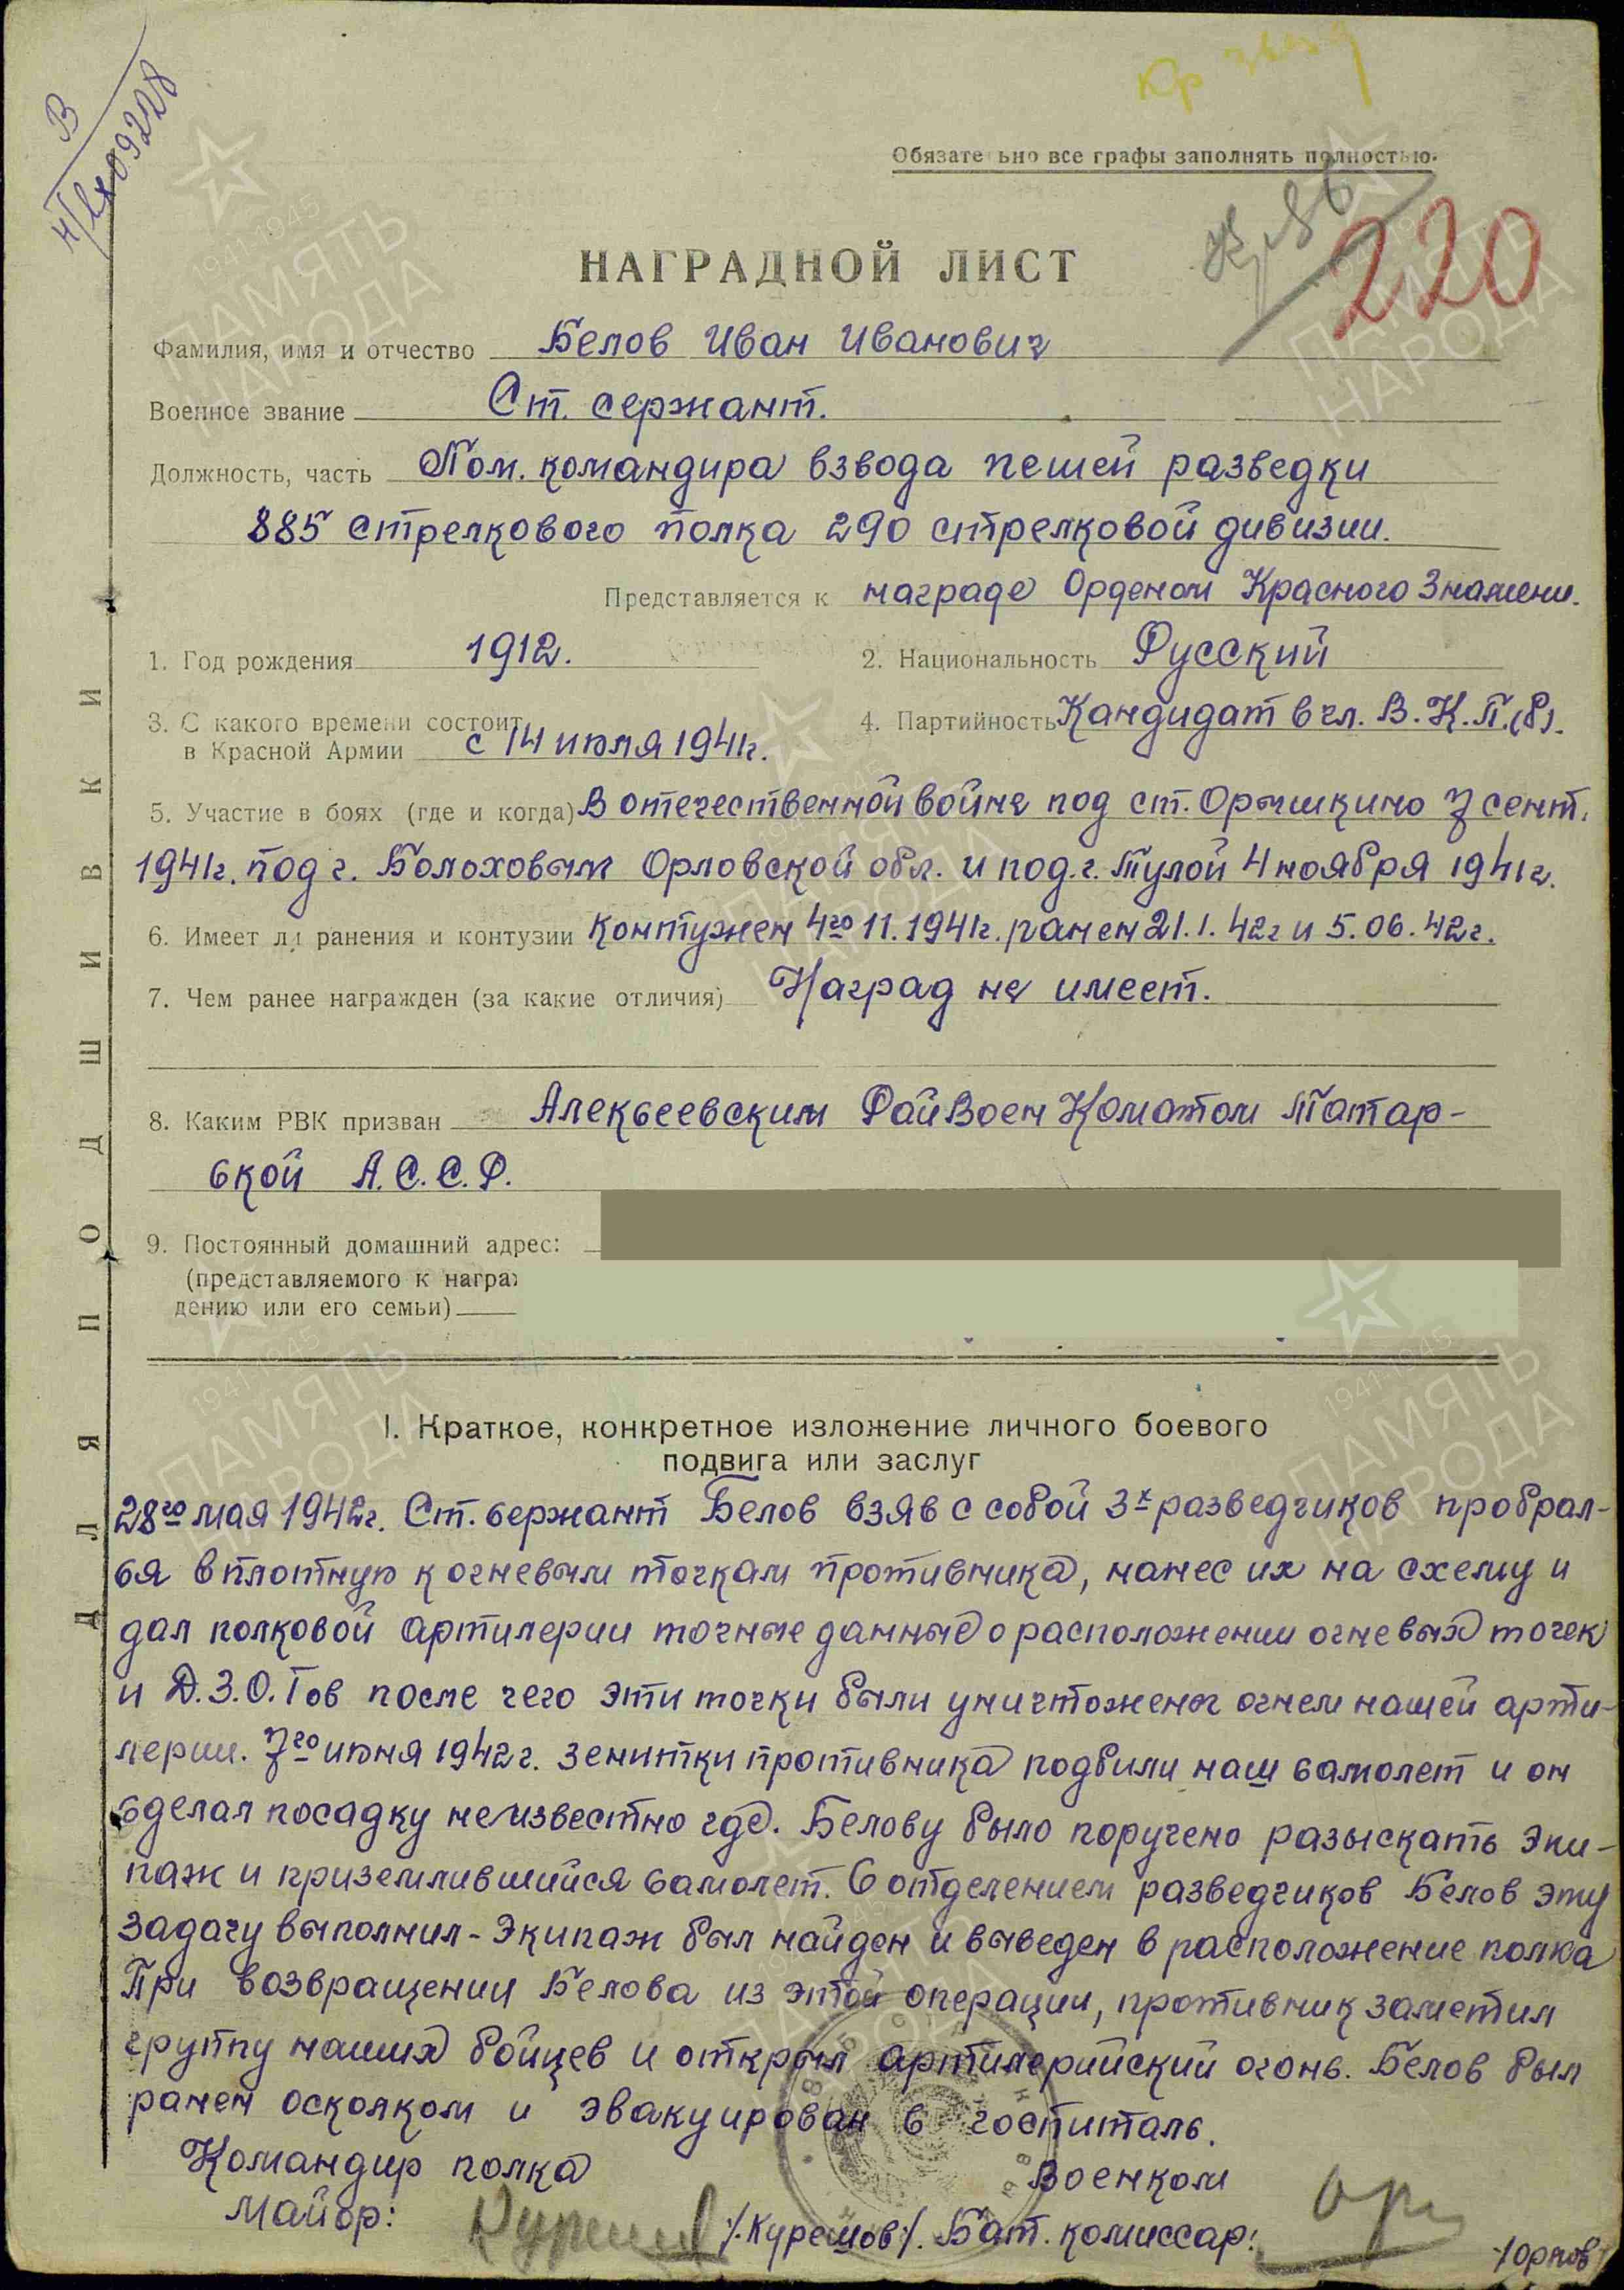 Кр звезд
В
09228
Обязательно все графы заполнять полностью.
220
НАГРАДНОЙ ЛИСТ
Фамилия, имя и отчество Белов Иван Иванович
Военное звание Ст. сержант.
Должность, часть Пом. командира взвода пешей разведки
885 стрелкового полка 290 стрелковой дивизии.
Представляется к награде Орденом Красного Знамени.
1. Год рождения 1912. 2. Национальность Русский
3. С какого времени состоит 4. Партийность Кандидат в чл. В.К.П.(б).
в Красной Армии с 14 июля 1941г.
5. Участие в боях (где и когда) В отечественной войне под ст. 7 сент.
1941г. под г. Болоховым Орловской обл. и под. г. Тулой 4 ноября 1941г.
6. Имеет ли ранения и контузии Контужен 4го 11.1941г. ранен 21.1.42г и 5.06.42г.
7. Чем ранее награжден (за какие отличия) Наград не имеет.
8. Каким РВК призван Алексеевским РайВоен Коматом Татар-
ской А.С.С.Р.
9. Постоянный домашний адрес:
(представляемого к награ
дению или его семьи)
ДЛЯ ПОДШИВКИ
I. Краткое, конкретное изложение личного боевого
подвига или заслуг
28го мая 1942г. Ст. сержант Белов взяв с собой 3х разведчиков пробрал-
ся вплотную к огневым точкам противника, нанес их на схему и
дал полковой артилерии точные данные о расположении огневых точек
и Д.З.О.Тов после чего эти точки были уничтожены огнем нашей арти-
лерии. 7го июня 1942г. зенитки противника подбили наш самолет и он
сделал посадку неизвестно где. Белову было поручено разыскать эки-
паж и приземлившийся самолет. С отделением разведчиков Белов эту
задачу выполнил - Экипаж был найден и выведен в расположение полка
При возвращении Белова из этой операции, противник заметил
группу наших бойцев и открыл артилерийский огонь. Белов был
ранен осколком и эвакуирован в госпиталь.
Командир полка Военком
Майор: /.Курешов./. Бат. комиссар:
/Орлов/
ПАМЯТЬ НАРОДА
1941-1945